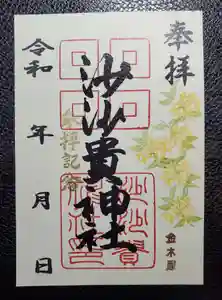 奉拝
沙沙貴神社
参拝記念
令和 年 月 日
金木犀
沙沙貴